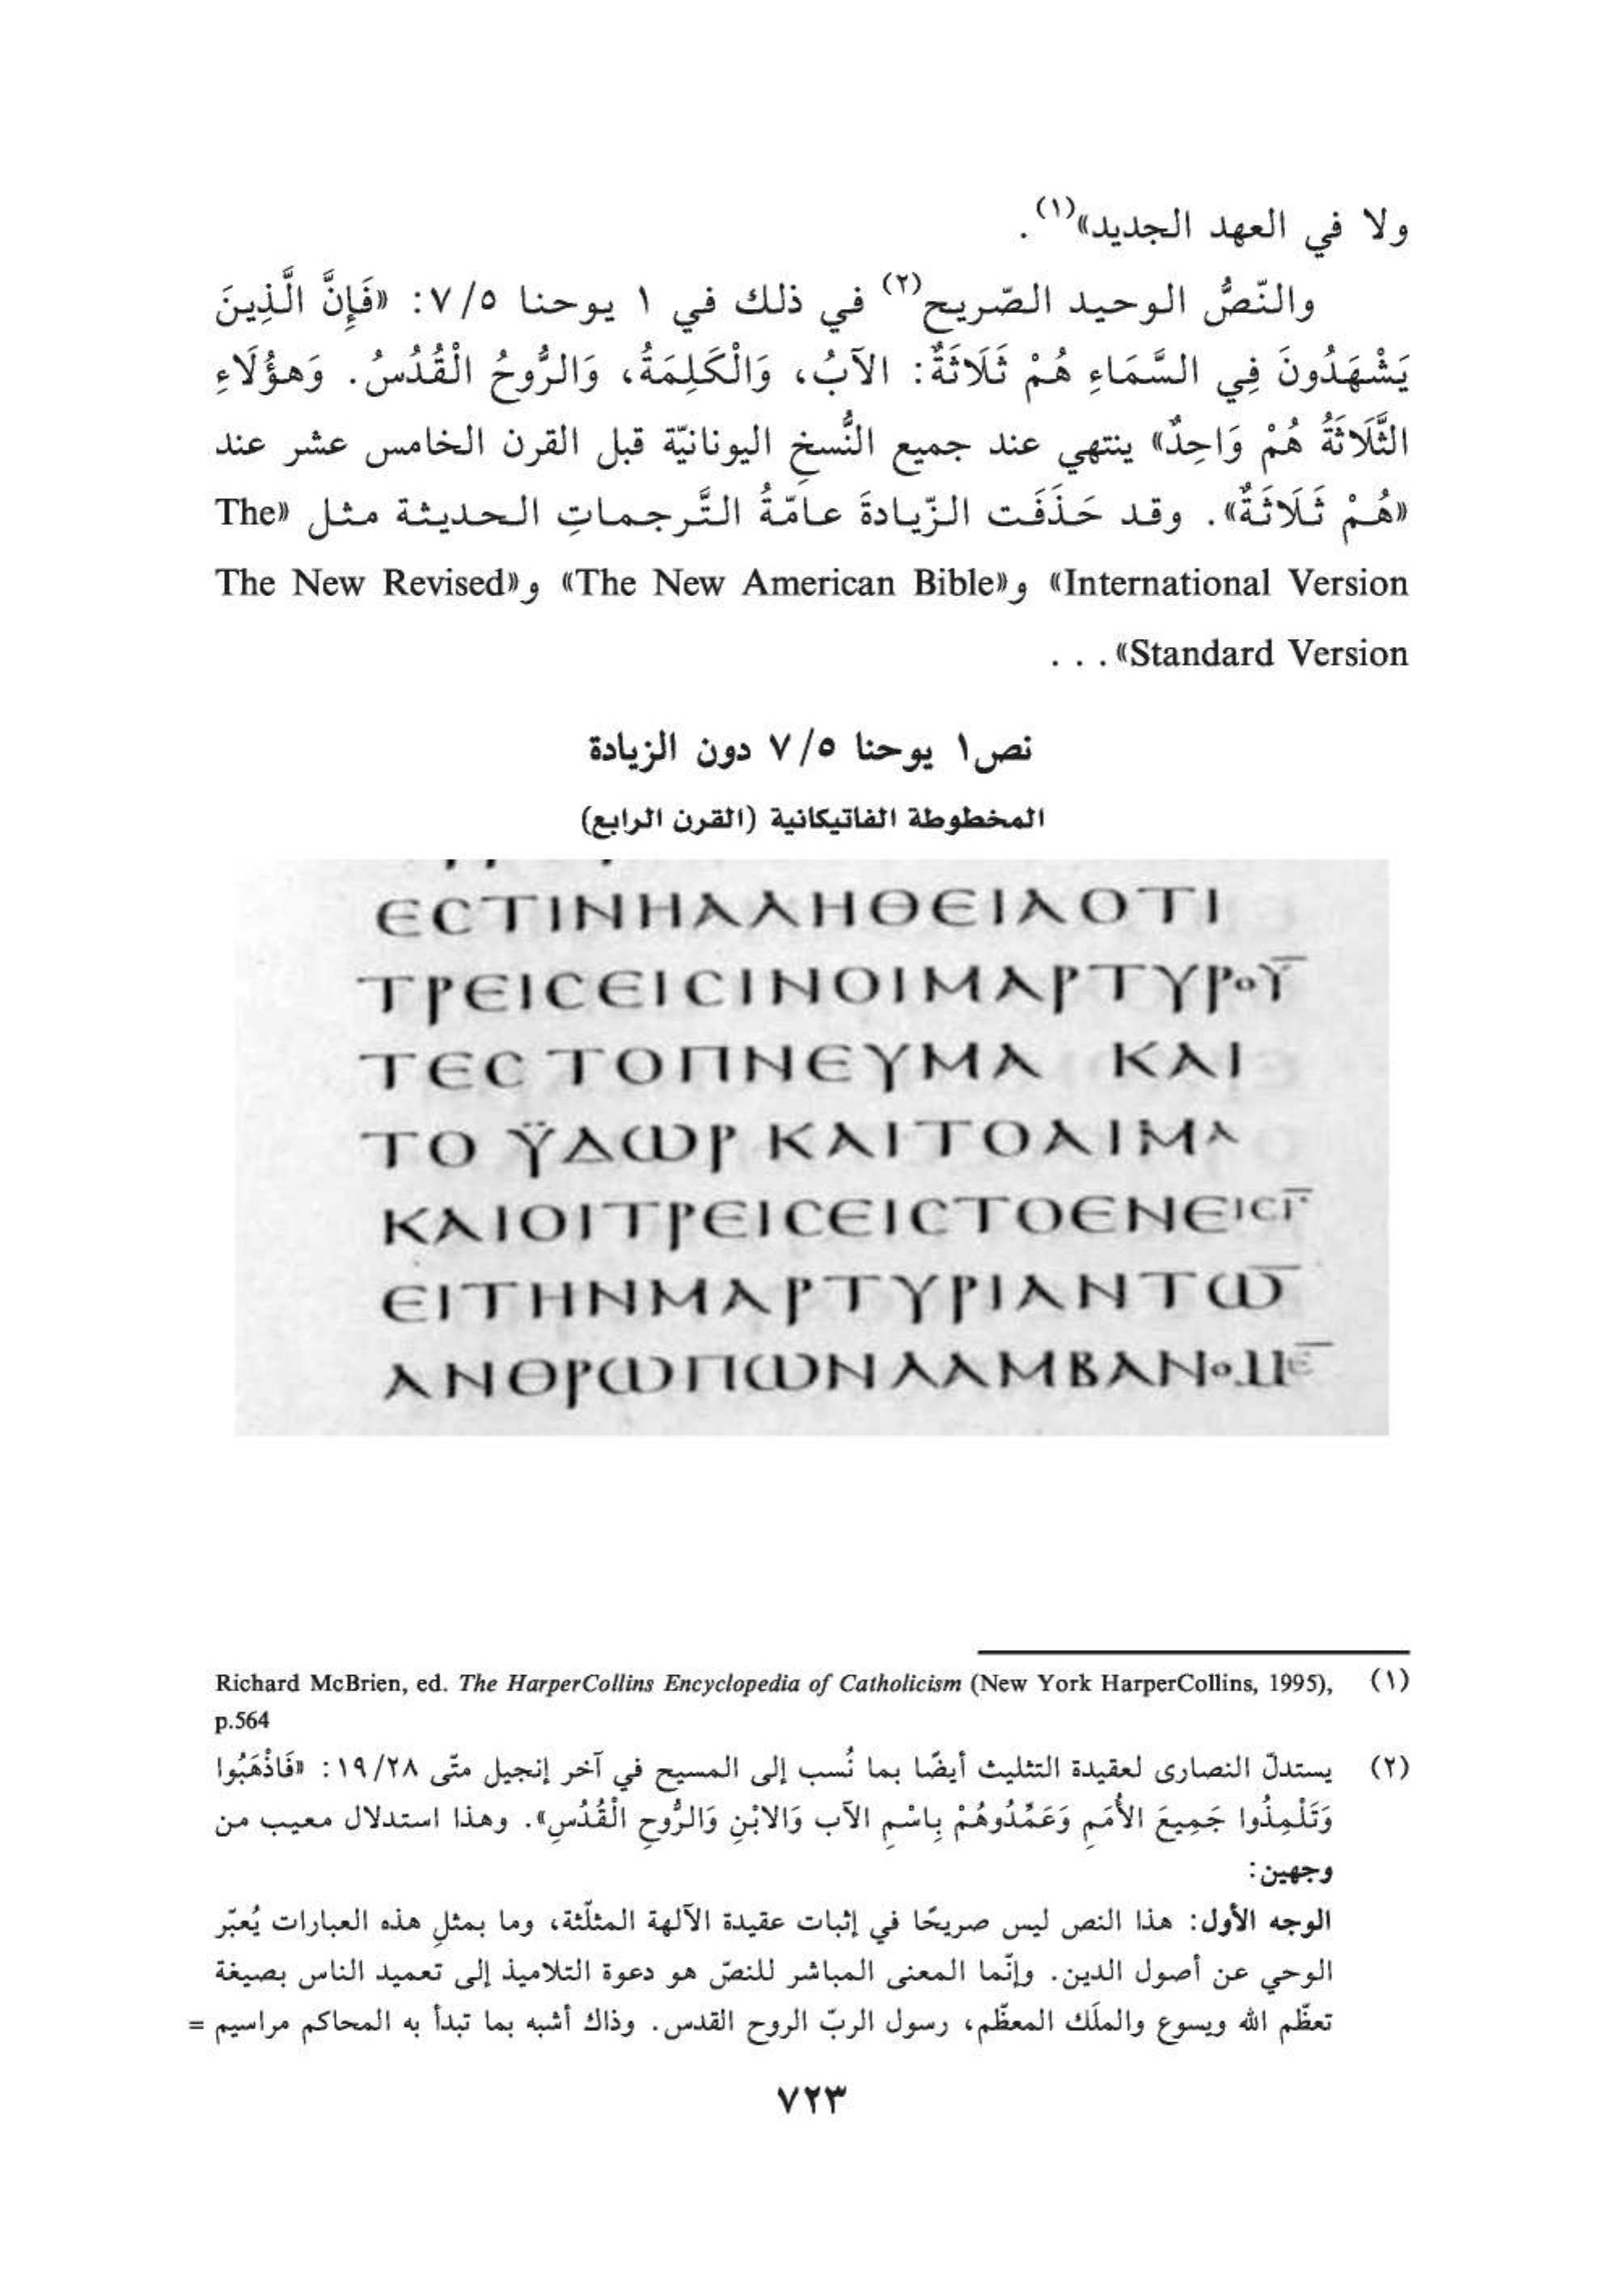 ولا في العهد الجديد»(١).
والنّصُّ الوحيد الصّريح(٢) في ذلك في ١ يوحنا ٥/ ٧: «فَإِنَّ الَّذِينَ
يَشْهَدُونَ فِي السَّمَاءِ هُمْ ثَلَاثَةٌ: الآبُ، وَالْكَلِمَةُ، وَالرُّوحُ الْقُدُسُ. وَهؤُلَاءِ
الثَّلَاثَةُ هُمْ وَاحِدٌ» ينتهي عند جميع النُّسخِ اليونانيّة قبل القرن الخامس عشر عند
«هُمْ ثَلَاثَةٌ». وقد حَذَفَت الزّيادةَ عامّةُ التَّرجماتِ الحديثة مثل «The
International Version» و«The New American Bible» و«The New Revised
Standard Version»...
نص١ يوحنا ٥/ ٧ دون الزيادة
المخطوطة الفاتيكانية (القرن الرابع)
ЄCΤΙΝΗΑΛΗΘЄΙΑΟΤΙ
ΤΡЄΙCЄΙCΙΝΟΙΜΑΡΤΥΡΟΥ̅
ΤЄC ΤΟΠΝЄΥΜΑ ΚΑΙ
ΤΟ ΫΔΩΡ ΚΑΙΤΟΑΙΜΑ
ΚΑΙΟΙΤΡЄΙCЄΙCΤΟЄΝЄΙCΙ̅·
ЄΙΤΗΝΜΑΡΤΥΡΙΑΝΤΩ̅
ΑΝΘΡΩΠΩΝΛΑΜΒΑΝΟΜЄ̅
(١) Richard McBrien, ed. The HarperCollins Encyclopedia of Catholicism (New York HarperCollins, 1995),
p.564
(٢) يستدلّ النصارى لعقيدة التثليث أيضًا بما نُسب إلى المسيح في آخر إنجيل متّى ٢٨/ ١٩: «فَاذْهَبُوا
وَتَلْمِذُوا جَمِيعَ الأُمَمِ وَعَمِّدُوهُمْ بِاسْمِ الآب وَالابْنِ وَالرُّوحِ الْقُدُسِ». وهذا استدلال معيب من
وجهين:
الوجه الأول: هذا النص ليس صريحًا في إثبات عقيدة الآلهة المثلّثة، وما بمثلِ هذه العبارات يُعبّر
الوحي عن أصول الدين. وإنّما المعنى المباشر للنصّ هو دعوة التلاميذ إلى تعميد الناس بصيغة
تعظّم الله ويسوع والملَك المعظّم، رسول الربّ الروح القدس. وذاك أشبه بما تبدأ به المحاكم مراسيم =
٧٢٣